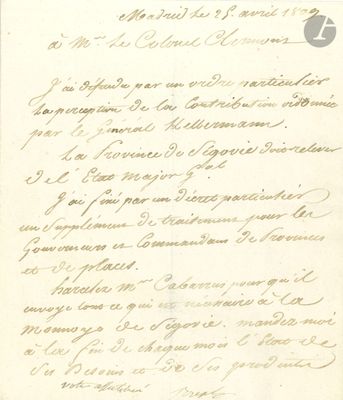 Madrid le 25. avril 1809
à Mr. le Colonel Clermont
J'ai défendu par un ordre particulier
la perception de la Contribution ordonnée
par le Général Kellermann.
La Province de Ségovie doit relever
de l'Etat Major Gral
J'ai fixé par un décret particulier
un Supplément de traitement pour les
Gouverneurs et Commandans de Provinces
et de places.
harcelez Mr. Cabarrus pour qu'il
envoye tout ce qui est nécessaire à la
Monnoye de Ségovie. mandez moi
à la fin de chaque mois le Etat de
Ses Besoins et de Ses produits
votre affectionné
Joseph